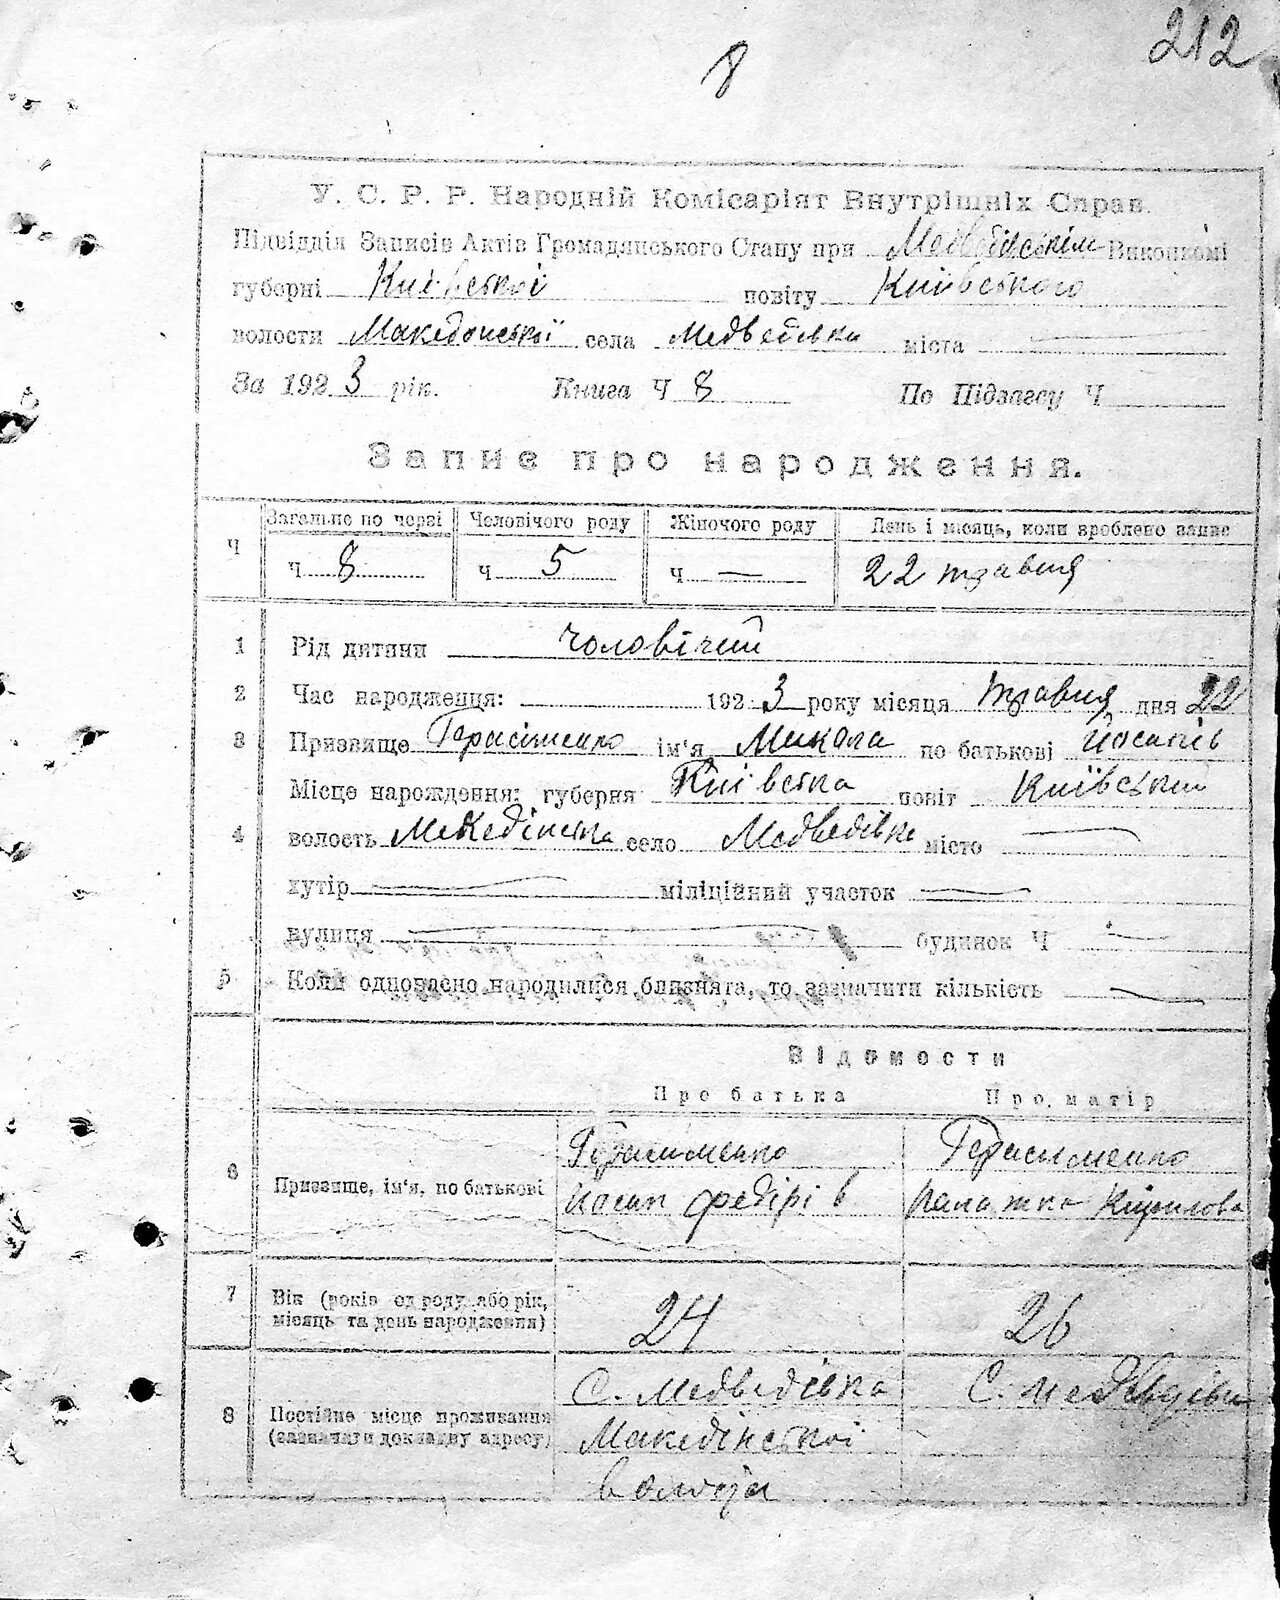 212
8
У. С. Р. Р. Народній Комісаріят Внутрішніх Справ.
Підвідділ Записів Актів Громадянського Стану при Медведівськім Виконкомі
губерні Київської повіту Київського
волости Македонської села Медведівка міста —
За 1923 рік. Книга Ч 8 По Підзагсу Ч
Запис про народження.
Ч Загальне по черзі Чоловічого роду Жіночого роду День і місяць, коли зроблено запис
ч 8 ч 5 ч — 22 травня
1 Рід дитини чоловічий
2 Час народження: 1923 року місяця травня дня 22
3 Призвище Герасименко ім'я Микола по батькові Йосипів
Місце народження: губерня Київська повіт Київський
4 волость Македінська село Медведівка місто —
хутір — міліційний участок —
вулиця — будинок Ч —
5 Коли одночасно народилися близнята, то зазначити кількість —
Відомости
Про батька Про матір
Герасименко Герасименко
6 Призвище, ім'я, по батькові Йосип Федірів Палажка Кирилова
7 Вік (років од роду або рік, місяць та день народження) 24 26
С. Медведівка С. Медведівка
8 Постійне місце проживання (зазначити докладну адресу) Македінської